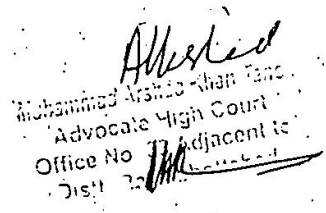 Attested
Muhammad Arshad Khan Tano
Advocate High Court
Office No Adjacent to
Distt